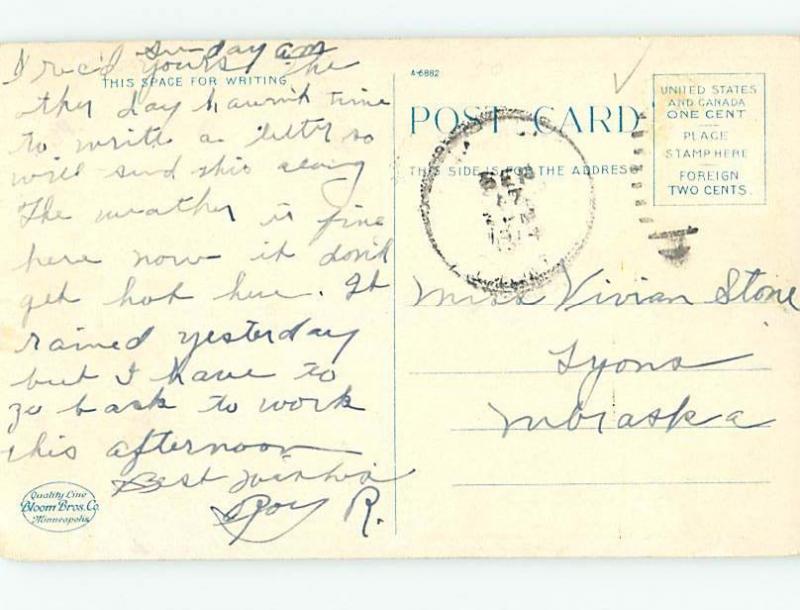 Sunday am
I rec'd yours the
THIS SPACE FOR WRITING
other day havent time
to write a letter so
will send this along
The weather is fine
here now it dont
get hot here. It
rained yesterday
but I have to
go back to work
this afternoon
Best wishes
Roy R.
Quality Line
Bloom Bros. Co.
Minneapolis
A-6882
POST CARD
THIS SIDE IS FOR THE ADDRESS
UNITED STATES
AND CANADA
ONE CENT
PLACE
STAMP HERE
FOREIGN
TWO CENTS.
SEP
1914
Miss Vivian Stone
Lyons
Nebraska